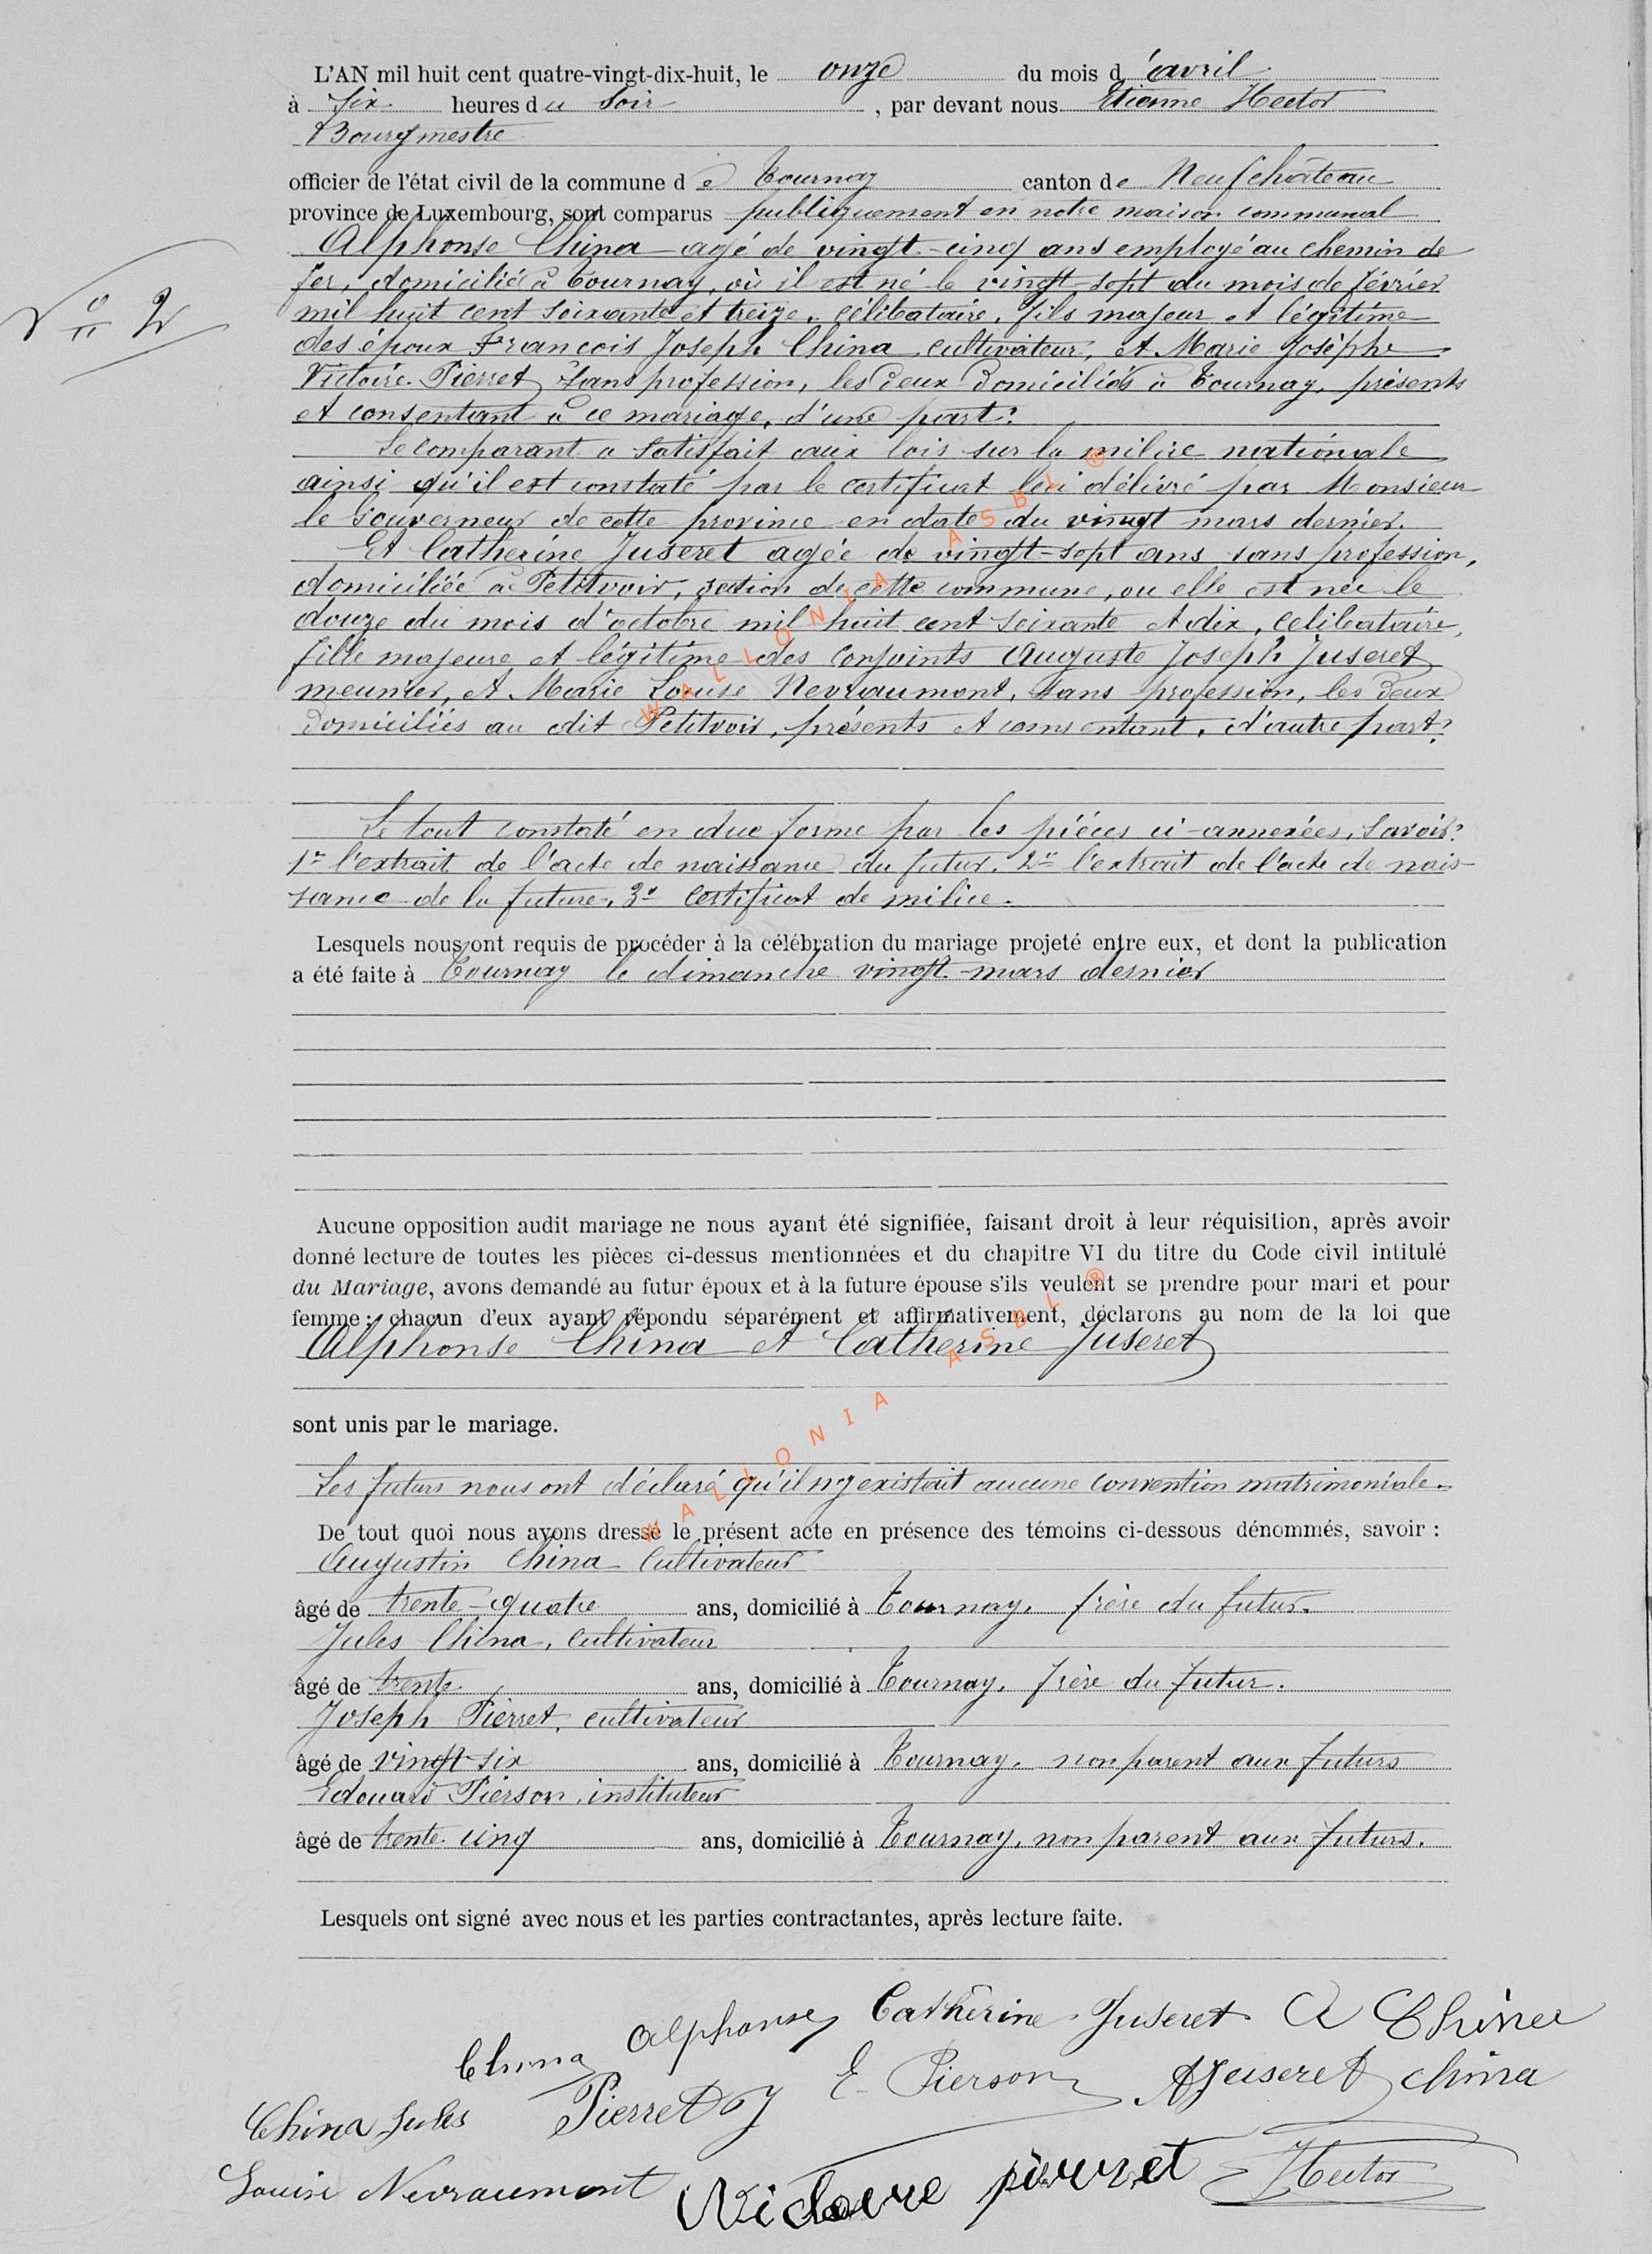 L'AN mil huit cent quatre-vingt-dix-huit, le onze du mois d'avril
à six heures du soir, par devant nous Etienne Hector
Bourgmestre
officier de l'état civil de la commune de Tournay canton de Neufchâteau
province de Luxembourg, sont comparus publiquement en notre maison communal
N° 2
Alphonse China agé de vingt-cinq ans employé au chemin de
fer, domicilié à Tournay, où il est né le vingt-sept du mois de février
mil huit cent soixante et treize, célibataire, fils majeur et légitime
des époux François Joseph China cultivateur, et Marie Josèphe
Victoire Pierret sans profession, les deux domiciliés à Tournay, présents
et consentant à ce mariage, d'une part.
Le comparant a satisfait aux lois sur la milice nationale
ainsi qu'il est constaté par le certificat lui délivré par Monsieur
le Gouverneur de cette province en date du vingt mars dernier.
Et Catherine Juseret agée de vingt-sept ans sans profession,
domiciliée à Petitvoir, section de cette commune, ou elle est née le
douze du mois d'octobre mil huit cent soixante et dix, célibataire,
fille majeure et légitime des conjoints Auguste Joseph Juseret
meunier, et Marie Louise Nevraumont, sans profession, les deux
domiciliés au dit Petitvoir, présents et consentant, d'autre part.
Le tout constaté en due forme par les pièces ci-annexées, savoir:
1° l'extrait de l'acte de naissance du futur. 2° l'extrait de l'acte de nais-
sance de la future. 3° certificat de milice.
Lesquels nous ont requis de procéder à la célébration du mariage projeté entre eux, et dont la publication
a été faite à Tournay le dimanche vingt mars dernier
Aucune opposition audit mariage ne nous ayant été signifiée, faisant droit à leur réquisition, après avoir
donné lecture de toutes les pièces ci-dessus mentionnées et du chapitre VI du titre du Code civil intitulé
du Mariage, avons demandé au futur époux et à la future épouse s'ils veulent se prendre pour mari et pour
femme; chacun d'eux ayant répondu séparément et affirmativement, déclarons au nom de la loi que
Alphonse China et Catherine Juseret
sont unis par le mariage.
Les futurs nous ont déclaré qu'il n'y existait aucune convention matrimoniale.
De tout quoi nous avons dressé le présent acte en présence des témoins ci-dessous dénommés, savoir :
Augustin China cultivateur
âgé de trente-quatre ans, domicilié à Tournay, frère du futur.
Jules China, cultivateur
âgé de trente ans, domicilié à Tournay, frère du futur.
Joseph Pierret, cultivateur
âgé de vingt-six ans, domicilié à Tournay, non parent aux futurs
Edouard Pierson, instituteur
âgé de trente-cinq ans, domicilié à Tournay, non parent aux futurs.
Lesquels ont signé avec nous et les parties contractantes, après lecture faite.
China Alphonse Catherine Juseret A China
China Jules Pierret J E. Pierson AJuseret China
Louise Nevraumont Victoire pierret Hector
WALLONIA ASBL ®
WALLONIA ASBL ®